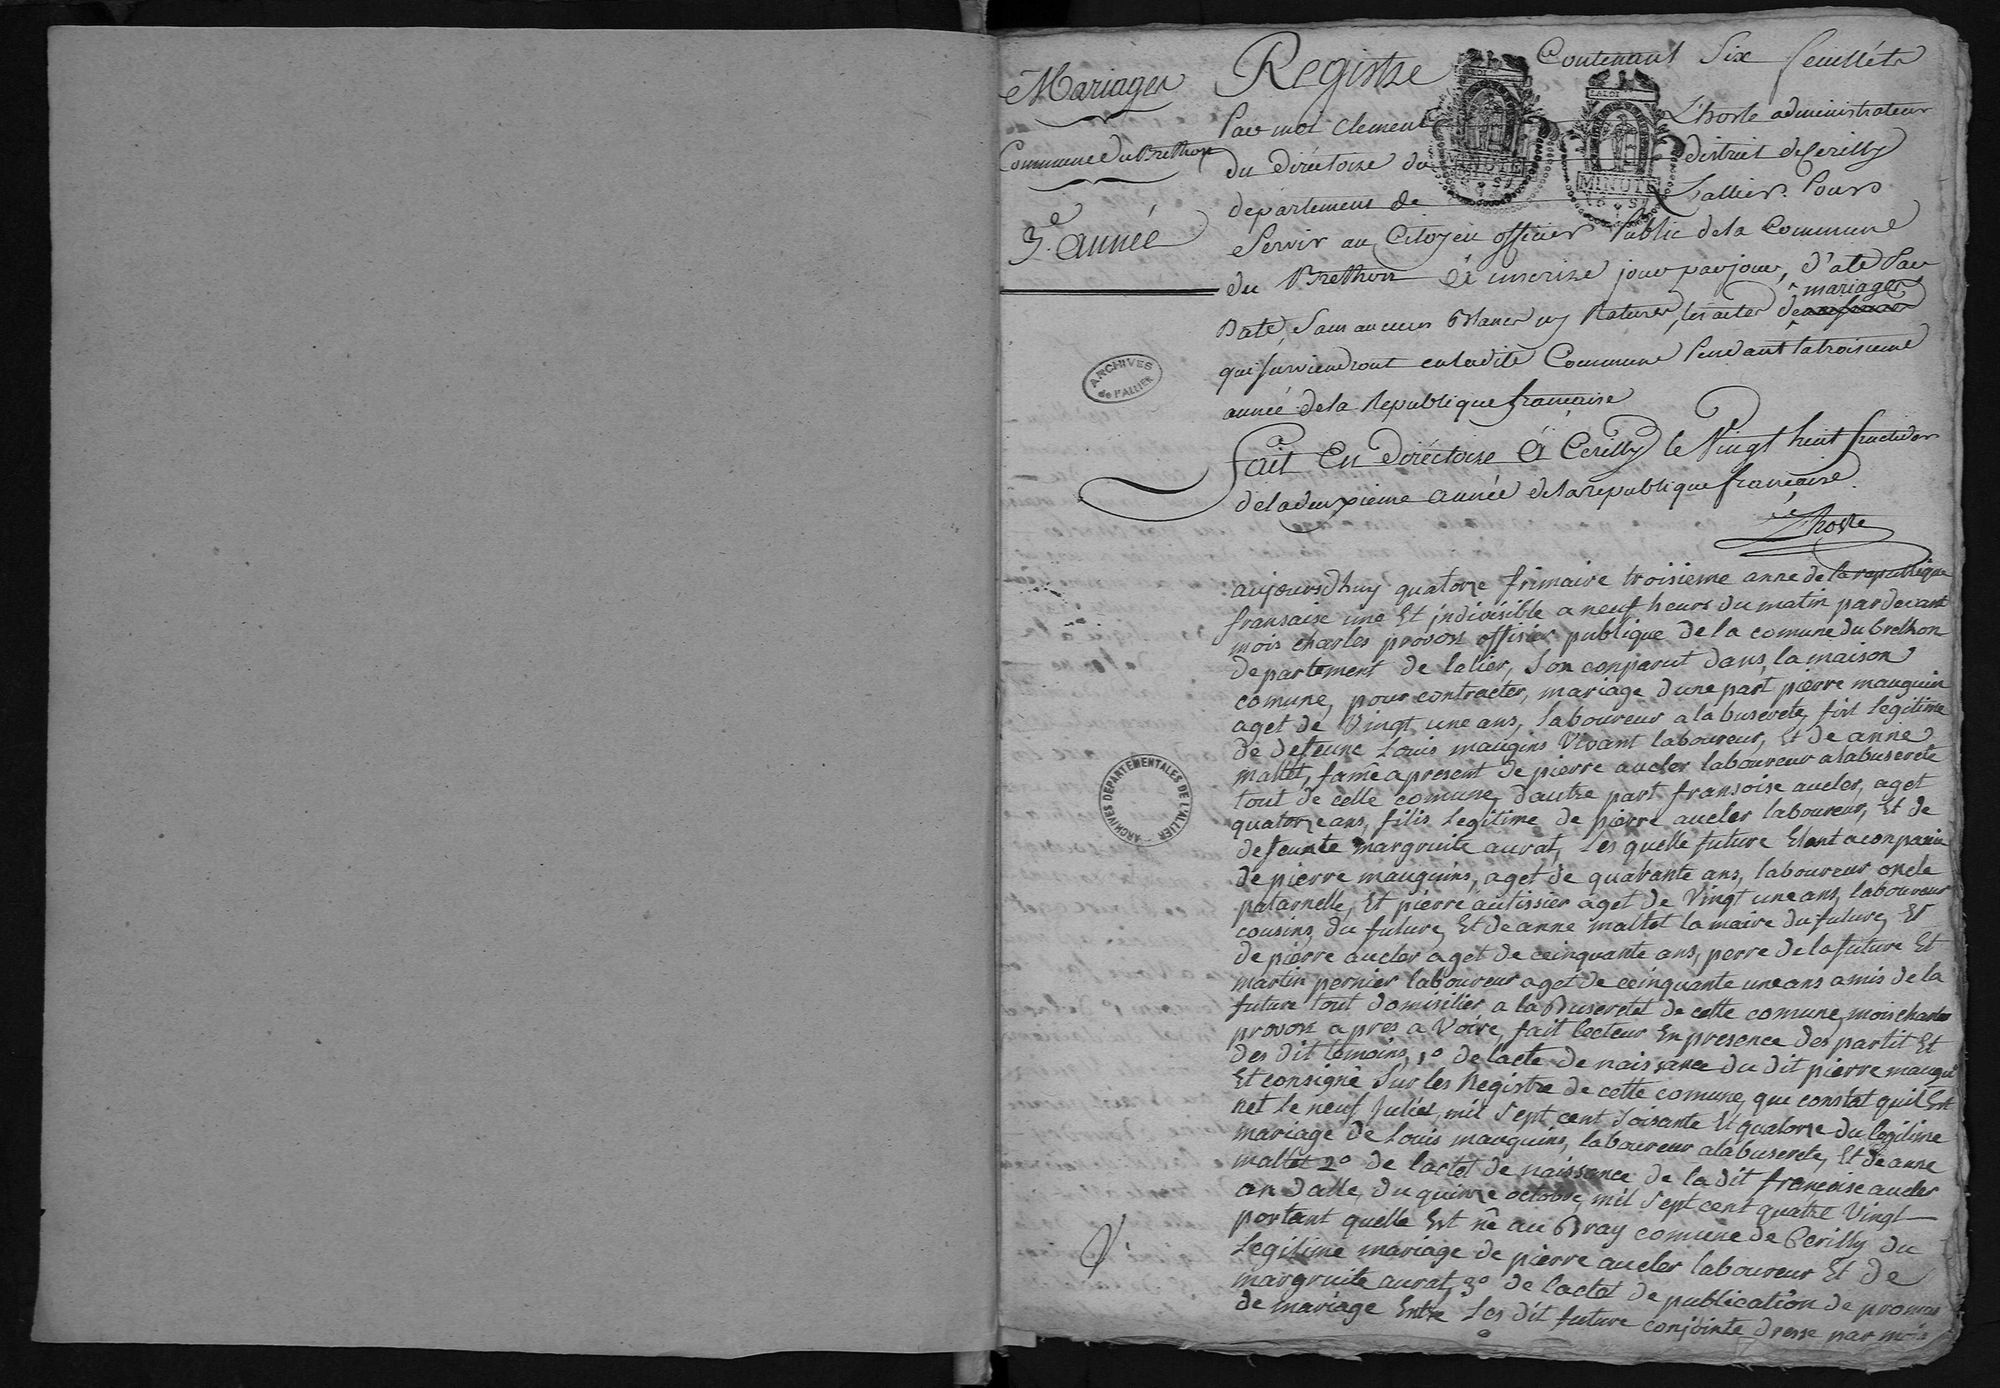 Mariages
Commune du Brethon
3.e année
Registre Contenant Six feuillets
Par moi Clement Lhoste administrateur
du directoire du district de Cerilly
departement de Lallier. Pour
Servir au Citoyen officier Public de la Commune
du Brethon à inscrire jour par jour, d'ate Par
mariages
Date, Sans aucuns Blancs ny Ratures, les actes de
qui surviendront en ladite Commune Pendant la troisieme
année de la Republique francaise
fait En directoire à Cerilly le Vingt huit fructidor
de la deuxieme année de la republique francaise.
Lhoste
ARCHIVES
de l'ALLIER
MINUTE
MINUTE
aujoursdhuy quatorze frimaire troisieme anne de la republique
fransaise une Et indivisible a neuf heurs du matin par devant
mois charles provost offisier publique de la comune du brethon
departement de lalier, Son conparut dans la maison
comune, pour contracter, mariage dune part pierre mauguin
aget de Vingt une ans, laboureur a la buserete, fils legitime
de defeune Louis maugins Vivant laboureur, Et de anne
maltet, famê apresent de pierre aucler laboureur a la buserete
tout de celle comune, dautre part fransoise aucler, aget
quatorze ans, fillis legitime de pierre aucler laboureur, Et de
defeunte margruite aurat, Les quelle future Etant aconpanie
de pierre mauguins, aget de quarante ans, laboureur oncle
patarnelle, Et pierre autissier aget de Vingt une ans, laboureur
cousins, du future, Et de anne maltet la maire du future, Et
de pierre aucler aget de ceinquante ans, perre de la future Et
martin pernier laboureur aget de ceinquante une ans amis de la
future tout domisilier a la Buseretet de cette comune, mois charles
provost apres a Voire, fait lecteur En presence des partit Et
des dit temoins, 1º de lacte de naissance du dit pierre maugui
Et consignê Sur les Registre de cette comune, que constat quil Est
net le neuf Juliet, mil Sept cent Soisante Et quatorze du legitime
mariage de Louis mauguins, laboureur a la buserete, Et de anne
maltet 2º de lactet de naissance de la dit françoise aucler
an dalle, du quinze octobre, mil Sept cent quatre Vingt
portant quelle Est nê au Bray comune de Cerilly du
Legitime mariage de pierre aucler laboureur Et de
margruite aurat, 3º de lactet de publication de promais
de mariage Entre Les dit future conjointe dresse par mois
ARCHIVES DÉPARTEMENTALES DE L'ALLIER